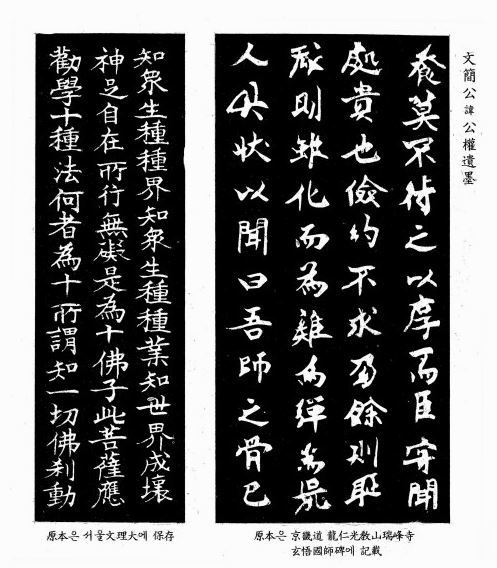 文簡公諱公權遺墨
莫不待之以厚臣聞
處貴也儉約不求餘則取
則雖化而為雞為彈
人具狀以聞曰吾師之骨已
原本은 京畿道 龍仁光教山瑞峰寺
玄悟國師碑에 記載
知衆生種種界知衆生種種業知世界成壞
神足自在所行無礙是為十佛子此菩薩應
勸學十種法何者為十所謂知一切佛刹動
原本은 서울文理大에 保存